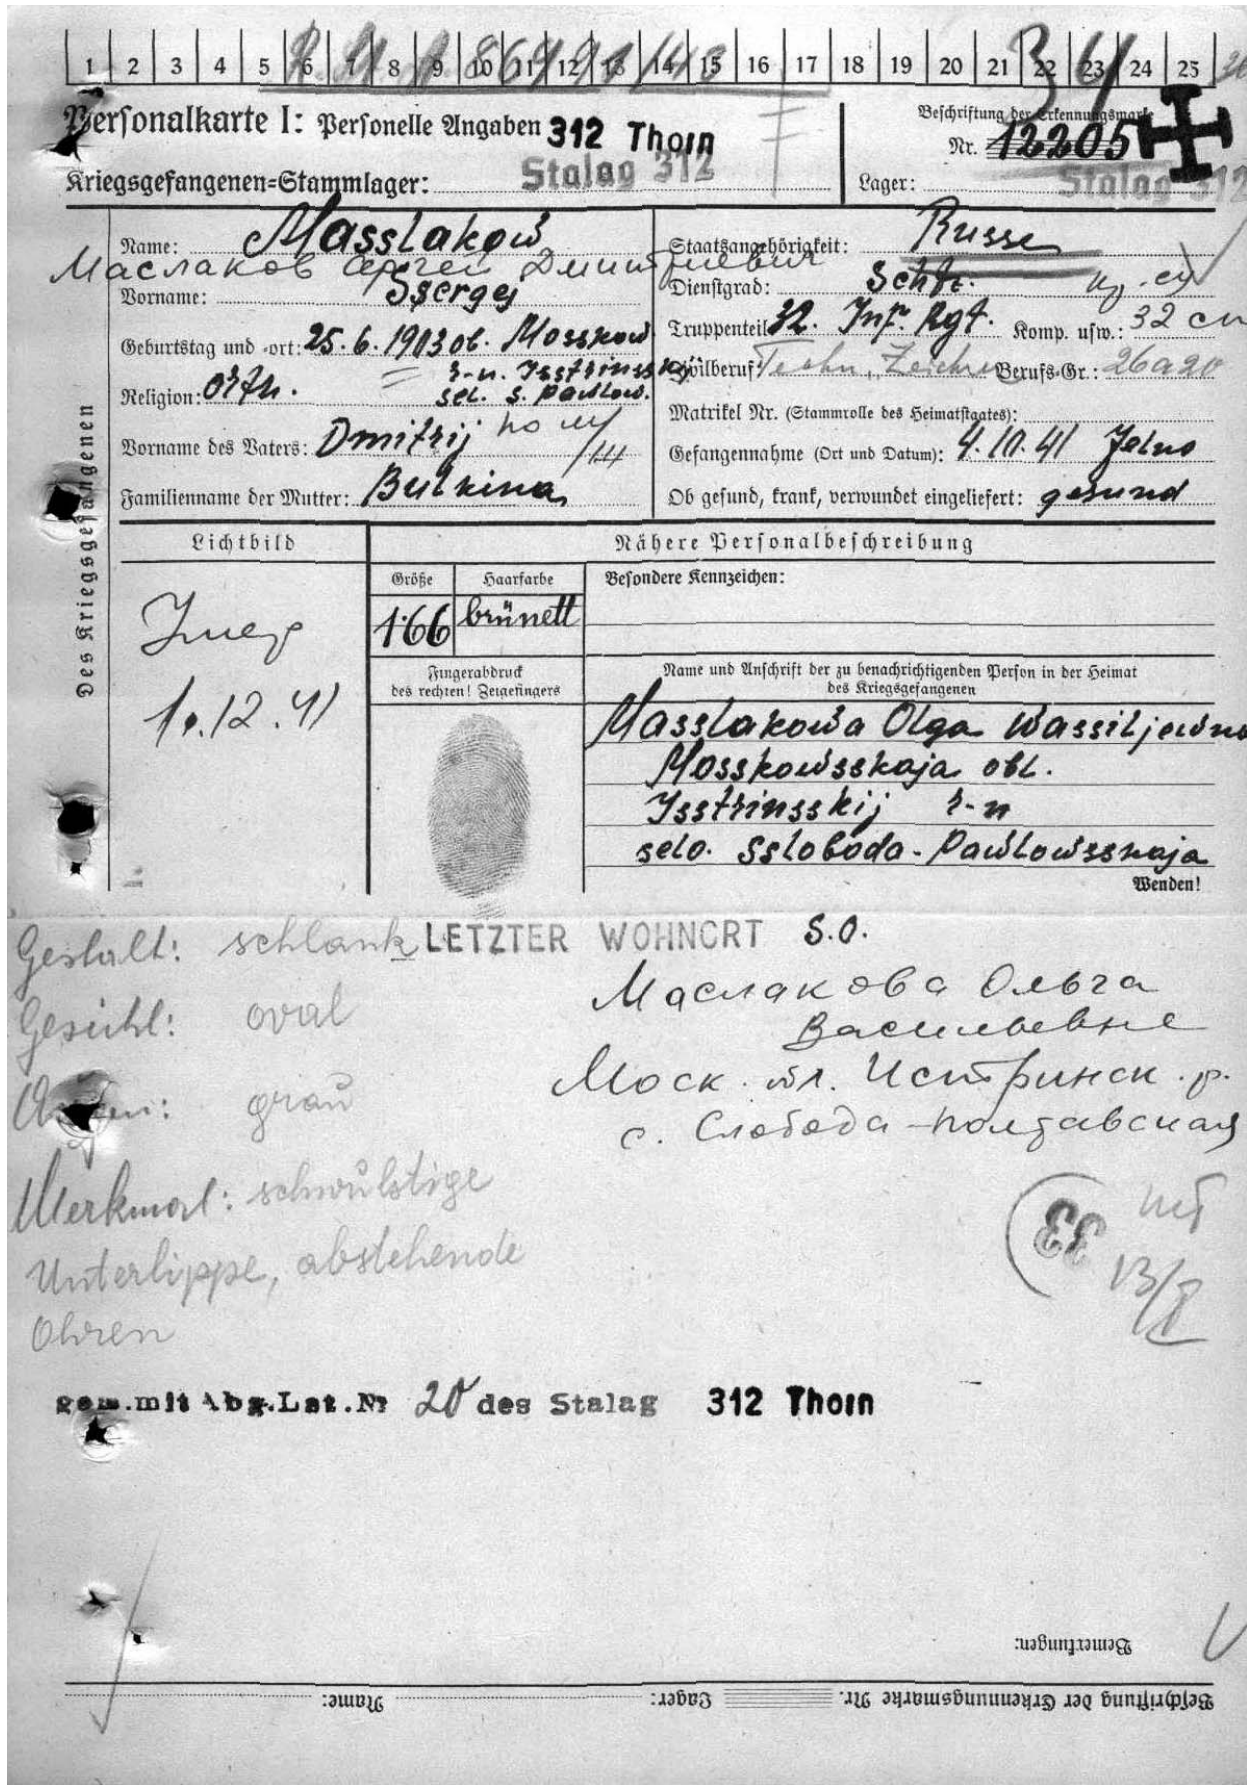 1 2 3 4 5 6 7 8 9 10 11 12 13 14 15 16 17 18 19 20 21 22 23 24 25
Personalkarte I: Personelle Angaben 312 Thorn
Beschriftung der Erkennungsmarke
Nr. 12205
Kriegsgefangenen-Stammlager: Stalag 312
Lager: Stalag 312
Des Kriegsgefangenen
Name: Masslakow
Маслаков Сергей Дмитриевич
Vorname: Ssergej
Geburtstag und -ort: 25.6.1903 ob. Mosskow
r-n. Isstrinsskij
Religion: orth. sel. s. Pawlow.
Vorname des Vaters: Dmitrij
Familienname der Mutter: Bulkina
Staatsangehörigkeit: Russe
Dienstgrad: Schtz.
Truppenteil: 32. Inf. Rgt. Komp. usw.: 32 сп
Zivilberuf: Techn. Zeichner Berufs-Gr.: 26a20
Matrikel Nr. (Stammrolle des Heimatstaates):
Gefangennahme (Ort und Datum): 4.10.41 Jelno
Ob gesund, krank, verwundet eingeliefert: gesund
Lichtbild
10.12.41
Nähere Personalbeschreibung
Größe Haarfarbe Besondere Kennzeichen:
1.66 brünett
Fingerabdruck
des rechten! Zeigefingers
Name und Anschrift der zu benachrichtigenden Person in der Heimat
des Kriegsgefangenen
Masslakowa Olga Wassiljewna
Mosskowsskaja obl.
Isstrinsskij r-n
selo. Ssloboda-Pawlowsskaja
Wenden!
Gestalt: schlank LETZTER WOHNORT S.O.
Gesicht: oval
Augen: grau
Merkmal: schwülstige
Unterlippe, abstehende
Ohren
Маслакова Ольга
Васильевне
Моск. обл. Истринск. р.
с. Слобода-Полтавская
33
gem. mit Abg. Lst. № 20 des Stalag 312 Thorn
Bemerkungen:
Beschriftung der Erkennungsmarke Nr. Lager: Name: